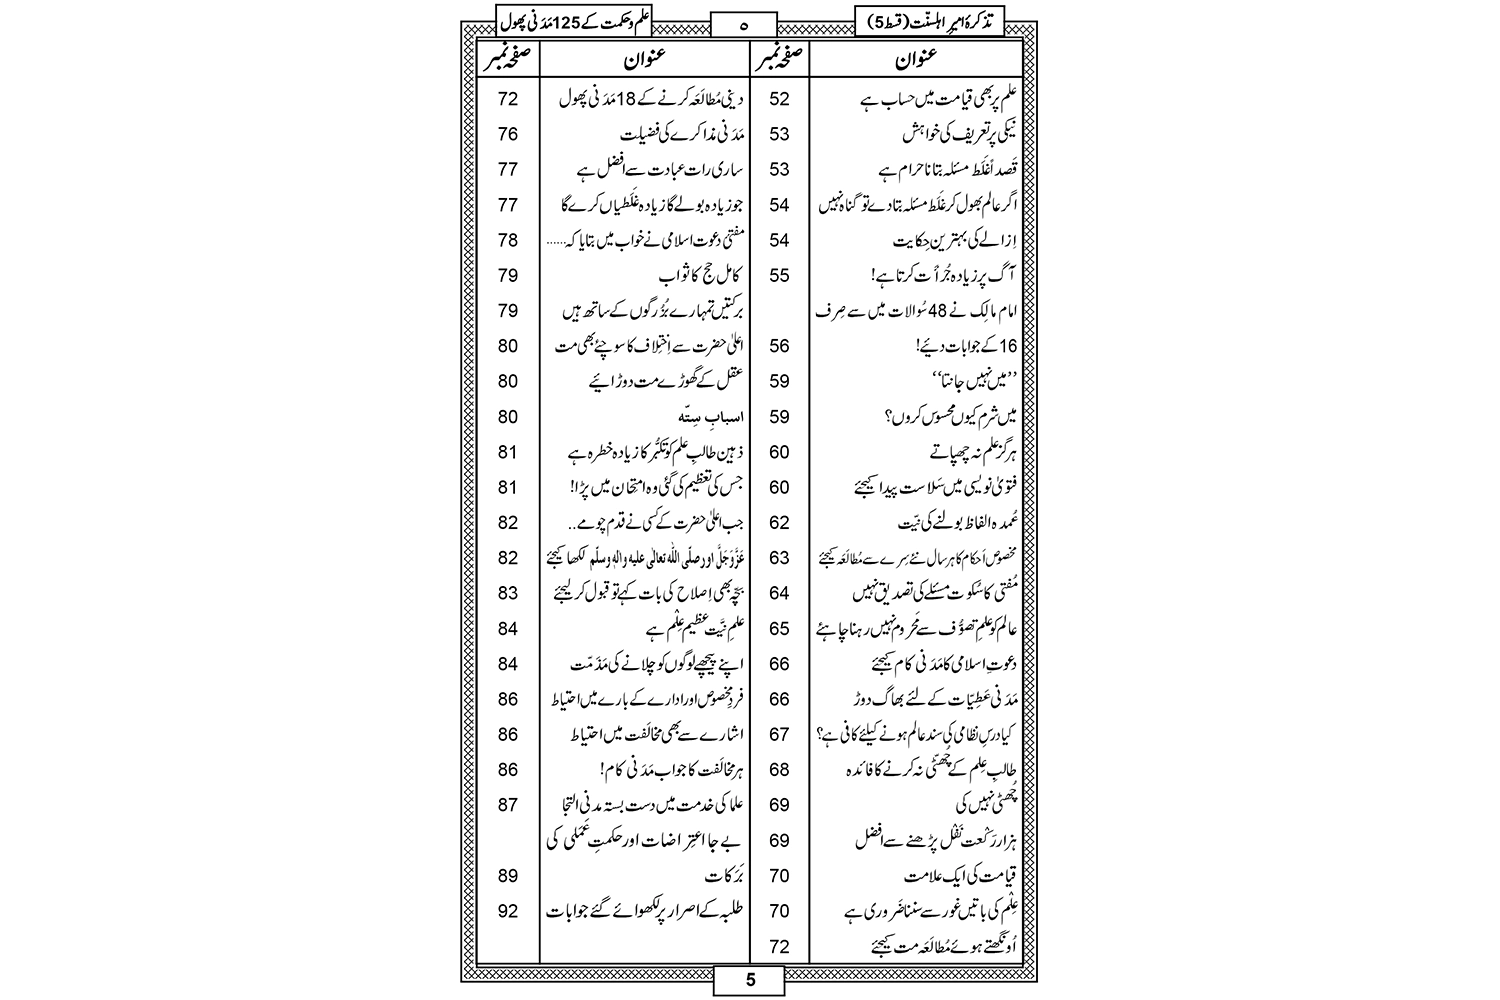 تذکرۂ امیرِ اہلسنّت (قسط 5)
۵
علم و حکمت کے 125 مَدَنی پھول
عنوان صفحہ نمبر عنوان صفحہ نمبر
علم پر بھی قیامت میں حساب ہے 52
نیکی پر تعریف کی خواہش 53
قَصداً غَلَط مسئلہ بتانا حرام ہے 53
اگر عالم بھول کر غَلَط مسئلہ بتادے تو گناہ نہیں 54
اِزالے کی بہترین حِکایت 54
آگ پر زیادہ جُرأت کرتا ہے! 55
امام مالِک نے 48 سُوالات میں سے صِرف
16 کے جوابات دئیے! 56
’’میں نہیں جانتا‘‘ 59
میں شرم کیوں محسوس کروں؟ 59
ہرگز علم نہ چھپاتے 60
فتویٰ نویسی میں سَلاست پیدا کیجئے 60
عُمدہ الفاظ بولنے کی نیّت 62
مخصوص اَحکام کا ہر سال نئے سِرے سے مُطالَعَہ کیجئے 63
مُفتی کا سُکوت مسئلے کی تصدیق نہیں 64
عالم کو علمِ تصوُّف سے مَحروم نہیں رہنا چاہئے 65
دعوتِ اسلامی کا مَدَنی کام کیجئے 66
مَدَنی عَطِیّات کے لئے بھاگ دوڑ 66
کیا درسِ نظامی کی سند عالم ہونے کیلئے کافی ہے؟ 67
طالبِ عِلم کے چُھٹّی نہ کرنے کا فائدہ 68
چُھٹی نہیں کی 69
ہزار رَکْعت نَفْل پڑھنے سے افضل 69
قیامت کی ایک علامت 70
عِلْم کی باتیں غور سے سننا ضَروری ہے 70
اُونگھتے ہوئے مُطالَعَہ مت کیجئے 72
دینی مُطالَعَہ کرنے کے 18 مَدَنی پھول 72
مَدَنی مذاکرے کی فضیلت 76
ساری رات عبادت سے افضل ہے 77
جو زیادہ بولے گا زیادہ غَلَطیاں کرے گا 77
مفتیٔ دعوت اسلامی نے خواب میں بتایا کہ ...... 78
کامل حج کا ثواب 79
برکتیں تمہارے بُزُرگوں کے ساتھ ہیں 79
اعلیٰ حضرت سے اِختِلاف کا سوچئے بھی مت 80
عقل کے گھوڑے مت دوڑائیے 80
اسبابِ سِتّہ 80
ذہین طالبِ علم کو تکبُّر کا زیادہ خطرہ ہے 81
جس کی تعظیم کی گئی وہ امتحان میں پڑا! 81
جب اعلیٰ حضرت کے کسی نے قدم چومے .. 82
عَزَّوَجَلَّ اور صلَّی اللہ تعالٰی علیہ واٰلہٖ وسلَّم لکھا کیجئے 82
بچّہ بھی اِصلاح کی بات کہے تو قبول کر لیجئے 83
علمِ نیَّت عظیم عِلْم ہے 84
اپنے پیچھے لوگوں کو چلانے کی مَذَمّت 84
فردِ مخصوص اور ادارے کے بارے میں احتیاط 86
اشارے سے بھی مخالَفت میں احتیاط 86
ہر مخالَفت کا جواب مَدَنی کام! 86
علما کی خدمت میں دست بستہ مدنی التجا 87
بے جا اعتِراضات اور حکمتِ عَمَلی کی
بَرَکات 89
طلبہ کے اصرار پر لکھوائے گئے جوابات 92
5